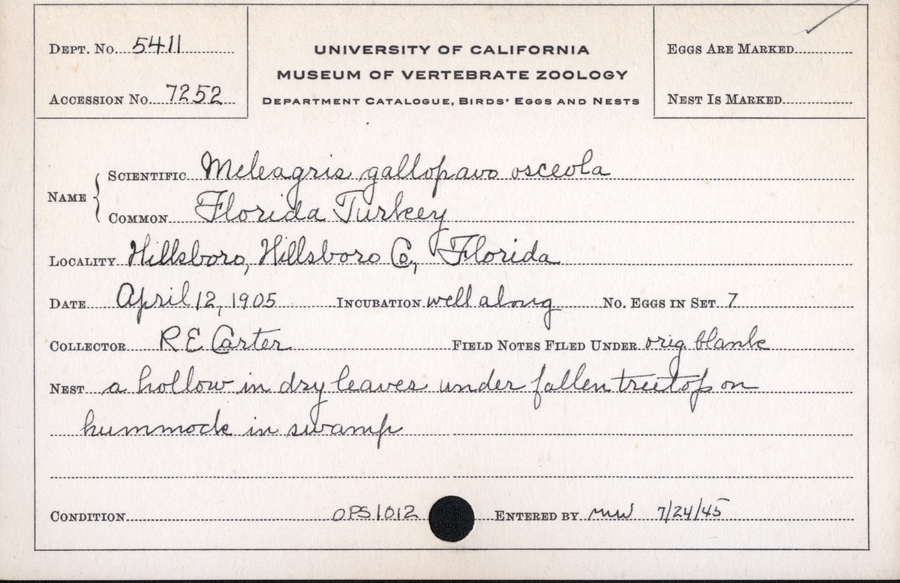 DEPT. NO. 5411
ACCESSION NO. 7252
UNIVERSITY OF CALIFORNIA
MUSEUM OF VERTEBRATE ZOOLOGY
DEPARTMENT CATALOGUE, BIRDS' EGGS AND NESTS
EGGS ARE MARKED
NEST IS MARKED
NAME
SCIENTIFIC Meleagris gallopavo osceola
COMMON Florida Turkey
LOCALITY Hillsboro, Hillsboro Co, Florida
DATE April 12, 1905 INCUBATION well along NO. EGGS IN SET 7
COLLECTOR R E Carter FIELD NOTES FILED UNDER orig blank
NEST a hollow in dry leaves under fallen treetop on
hummock in swamp
CONDITION OPS1012 ENTERED BY MWW 7/24/45